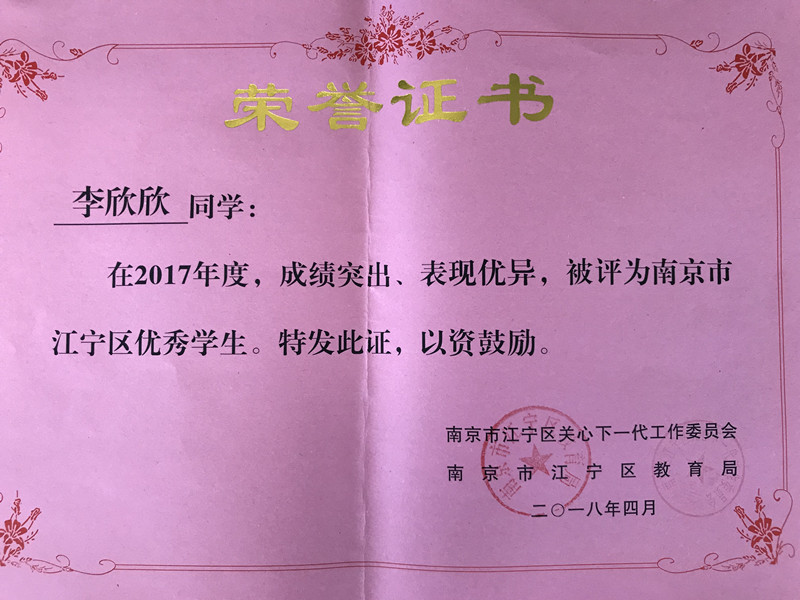 荣誉证书
李欣欣 同学：
在2017年度，成绩突出、表现优异，被评为南京市
江宁区优秀学生。特发此证，以资鼓励。
南京市江宁区关心下一代工作委员会
南京市江宁区教育局
二〇一八年四月
南京市江宁区教育局